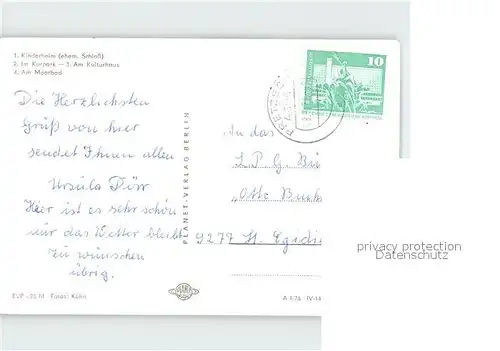 1. Kinderheim (ehem. Schloß)
2. Im Kurpark — 3. Am Kulturhaus
4. Am Moorbad
10
Die Herzlichsten
Gruß von hier
sendet Ihnen allen
Ursula Dörr
Hier ist es sehr schön
nur das Wetter bleibt
zu wünschen
übrig.
PLANET-VERLAG BERLIN
An das
L.P.G. Bü
„Otto Buch
9277 St. Egidie
privacy protection
Datenschutz
EVP -,20 M Fotos: Kühn